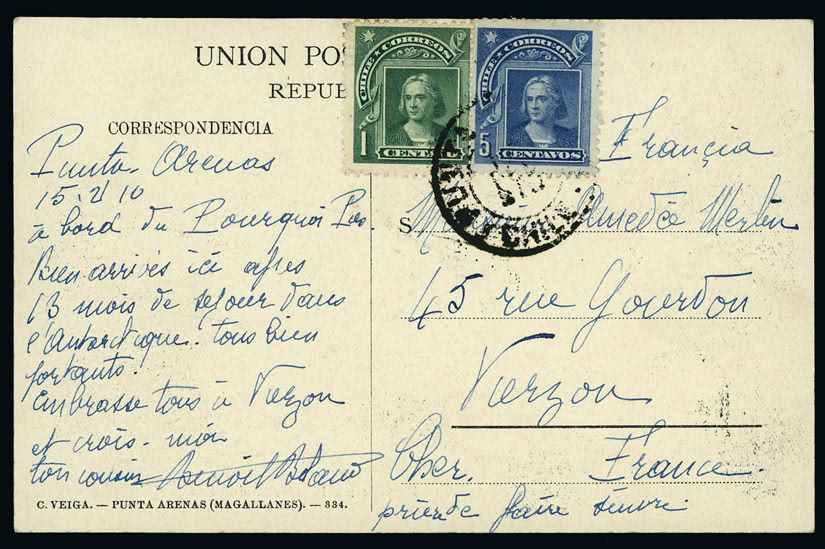 UNION POS
REPUB
CORRESPONDENCIA
CHILE CORREOS
1
CENTAVO
CHILE CORREOS
5
CENTAVOS
CHILE
Punta-Arenas
15.2 10
à bord du Pourquoi Pas
Bien arrivés ici après
13 mois de séjour dans
l'Antarctique. tous bien
portants.
Embrasse tous à Vierzon
et crois-moi
ton cousin
Francia
S
Amedée Merlin
45 rue Gourdon
Vierzon
Cher. France.
prière de faire suivre.
C. VEIGA. — PUNTA ARENAS (MAGALLANES). — 334.